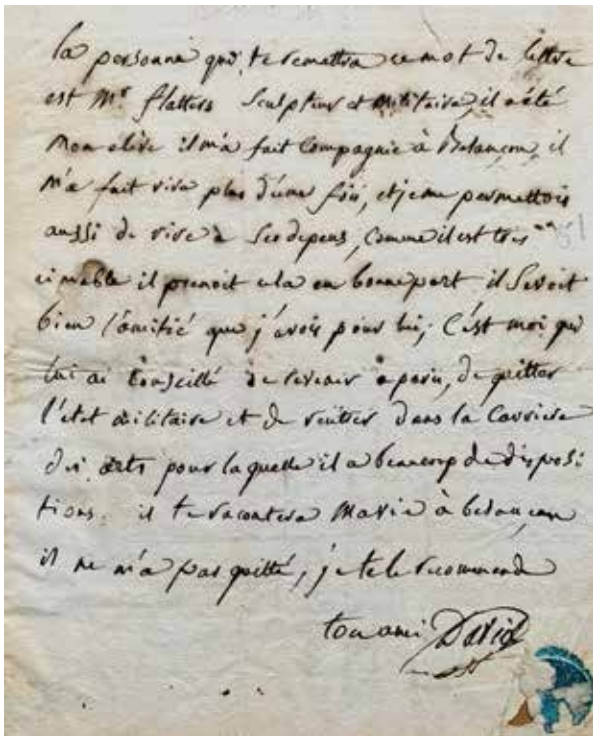 la personne qui te remettra ce mot de lettre
est Mr flatters Sculpteur et militaire, il a été
mon elève il m'a fait Compagnie à Besançon, il
m'a fait rire plus d'une fois, et je me permettois
aussi de rire à Ses depens, Comme il est très
aimable il prenoit cela en bonne part il Savoit
bien l'amitié que j'avois pour lui, C'est moi qui
lui ai Conseillé de revenir à paris, de quitter
l'etat militaire et de rentrer dans la Carriere
des arts pour laquelle il a beaucoup de disposi
tions. il te racontera Ma vie à besançon
il ne m'a pas quitté, je te le recommande
ton ami David